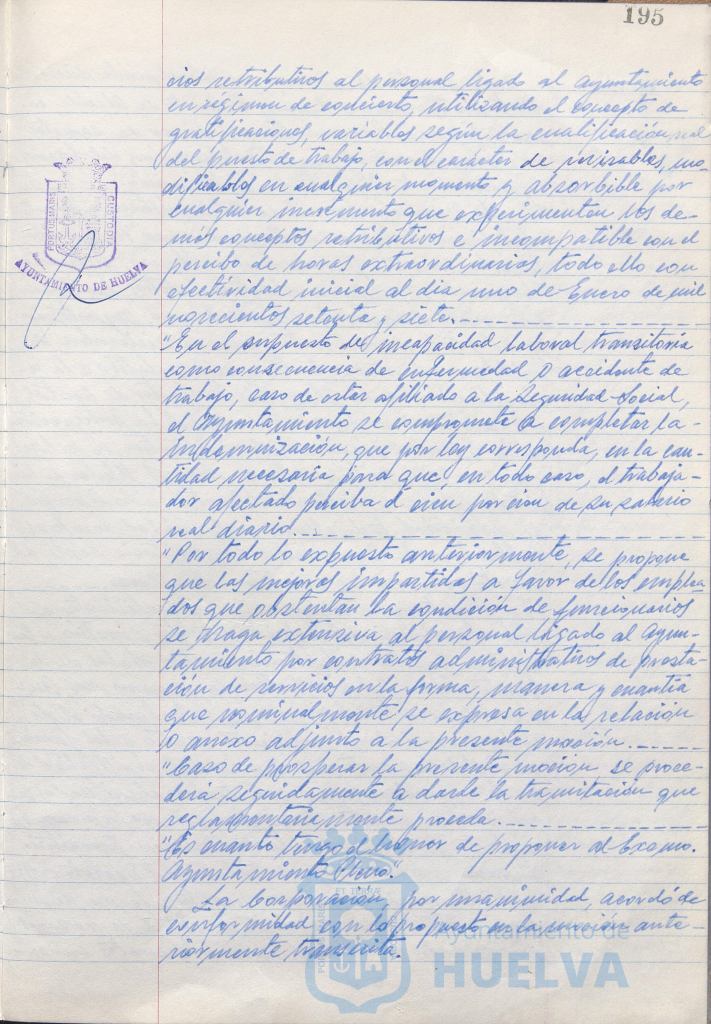 195
cios retributivos al personal ligado al Ayuntamiento
en régimen de concierto, utilizando el concepto de
gratificaciones, variables según la cualificación real
del puesto de trabajo, con el carácter de revisables, mo-
dificables en cualquier momento y absorbible por
cualquier incremento que experimentan los de-
más conceptos retributivos e incompatible con el
percibo de horas extraordinarias, todo ello con
efectividad inicial al día uno de Enero de mil
novecientos setenta y siete.
"En el supuesto de incapacidad laboral transitoria
como consecuencia de enfermedad o accidente de
trabajo, caso de estar afiliado a la Seguridad Social,
el Ayuntamiento se compromete a completar la
indemnización, que por ley corresponda, en la can-
tidad necesaria para que, en todo caso, el trabaja-
dor afectado perciba el cien por cien de su salario
real diario.
"Por todo lo expuesto anteriormente, se propone
que las mejoras impartidas a favor de los emplea-
dos que ostentan la condición de funcionarios
se haga extensiva al personal ligado al Ayun-
tamiento por contratos administrativos de presta-
ción de servicios en la forma, manera y cuantía
que nominalmente se expresa en la relación
o anexo adjunto a la presente moción.
"Caso de prosperar la presente moción se proce-
derá seguidamente a darle la tramitación que
reglamentariamente proceda.
"Es cuanto tengo el honor de proponer al Excmo.
Ayuntamiento Pleno."
La Corporación, por unanimidad, acordó de
conformidad con lo propuesto en la moción ante-
riormente transcrita.
PORTUS MARIS
CUSTODIA
AYUNTAMIENTO DE HUELVA
Ayuntamiento de
HUELVA